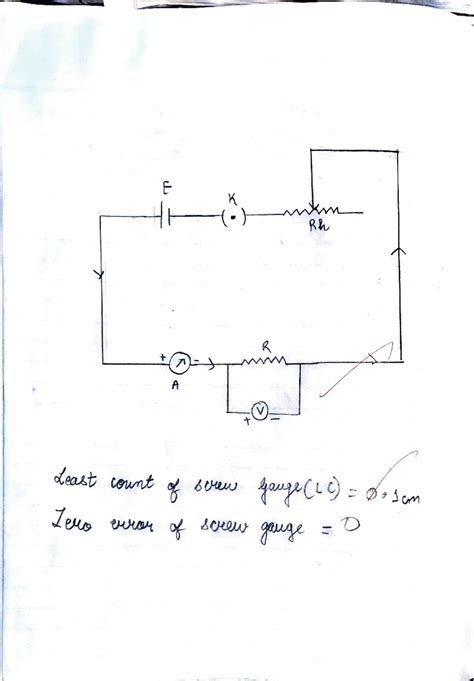 E
K
Rh
R
+ - 
A
V
+ -
Least count of screw gauge (LC) = 0.1cm
Zero error of screw gauge = 0